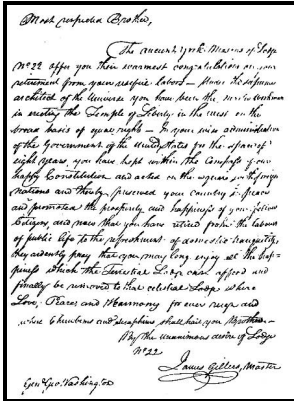 Most respected Brother,
The ancient York Masons of Lodge
No 22 offer you their warmest congratulations on your
retirement from your useful labors – Under the supreme
architect of the Universe you have been the Workman
in erecting the Temple of Liberty in the west on the
broad basis of equal rights – In your wise administration
of the Government of the United States for the space of
eight years, you have kept within the compass of our
happy Constitution and acted on the square with foreign
nations and thereby preserved your country in peace
and promoted the prosperity and happiness of your fellow
Citizens, and now that you have retired from the labours
of public life to the refreshment of domestic tranquility,
they ardently pray that you may long enjoy all the hap-
piness which the Terrestial Lodge can afford and
finally be removed to that celestial Lodge where
Love, Peace and Harmony for ever reign and
where Cherubims and Seraphims shall hail you Brother.–
By the unanimous desire of Lodge
No 22
James Gillies, Master
Genl Geo: Washington